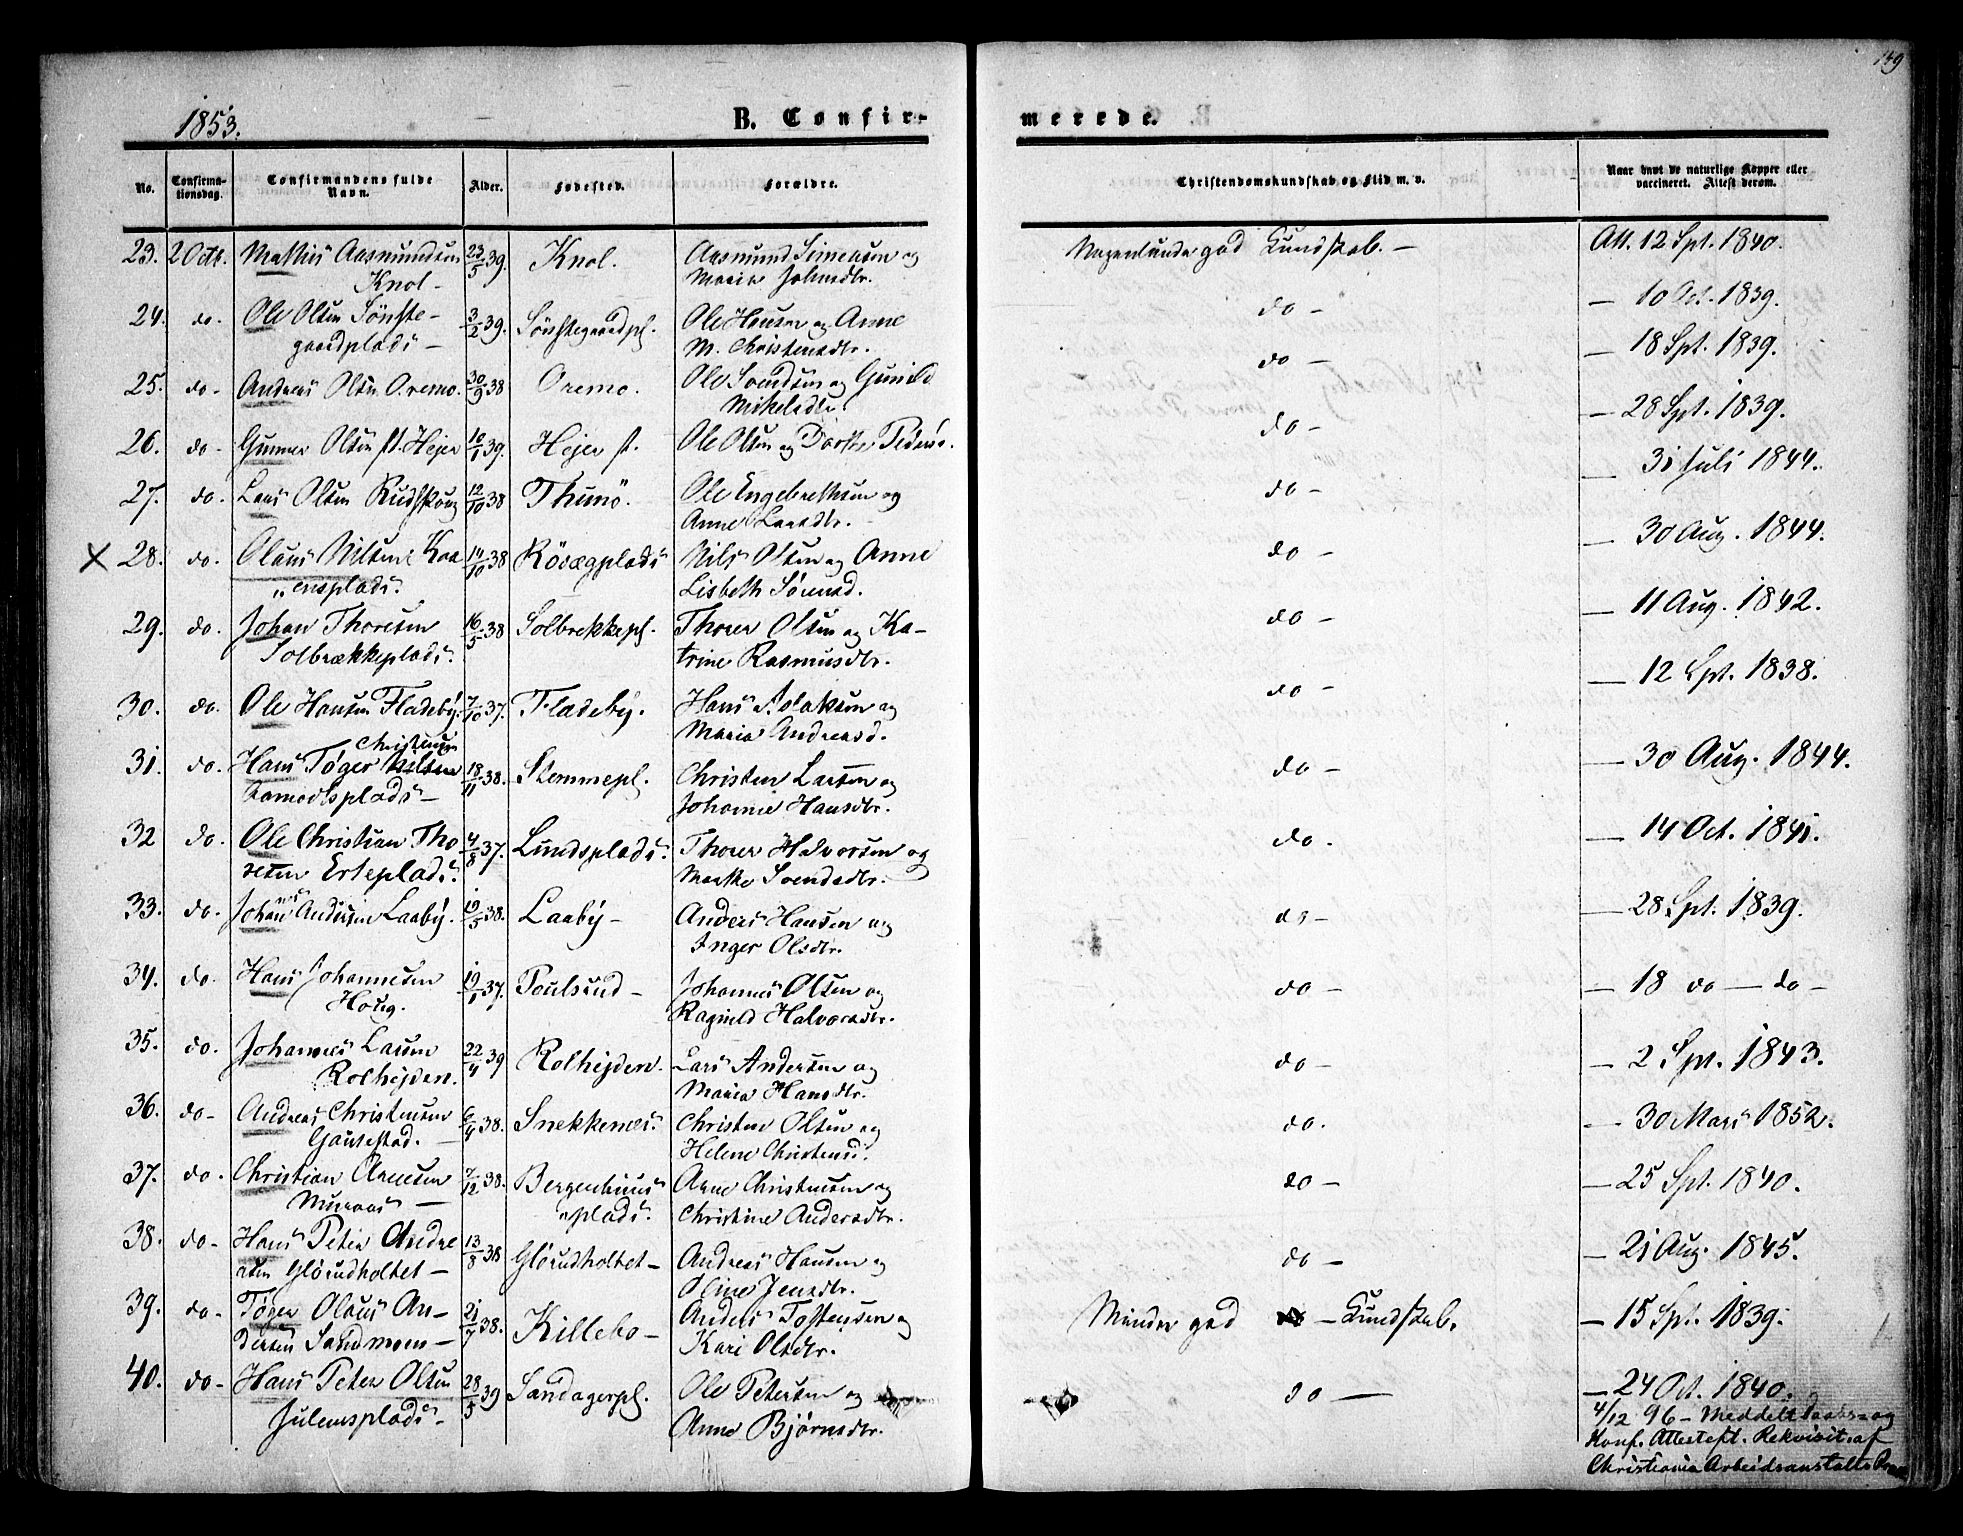 159
1853.
B. Confir-
merede.
No.
Confirma-
tionsdag.
Confirmandens fulde
Navn.
Alder.
Fødested.
Forældre.
Christendomskundskab og Flid m. v.
Naar havt de naturlige Kopper eller
vaccineret. Attest derom.
23. 2 Octb. Mathis Aasmundsen 23/5 39. Knol. Aasmund Simensen og god Kundskab. — Att. 12 Spt. 1840.
Knol - Maria Johnsdtr.
24. do. Ole Olsen Sønste- 3/2 39. Sønstegaardpl. Ole Hansen og Anne do - — 10 Oct. 1839.
gaardplads - M. Christensdtr.
25. do - Andreas Olsen Oremo. 30/9 38 Oremo. Ole Svendsen og Gunild do - — 18 Spt. 1839.
Mikelsdtr.
26. do - Gunner Olsen st. Hejer 10/1 39. Hejer st. Ole Olsen og Dorthe Peders. do - — 28 Spt. 1839.
27. do. Lars Olsen Rudskoug 12/10 38 Thunö. Ole Engebrethsen og do - — 31 Juli 1844.
Anne Larsdtr.
X 28. do. Olaus Nilsen Kaa 14/10 38 Rösægplads Nils Olsen og Anne do - — 30 Aug. 1844.
„ensplads. Lisbeth Sörensd.
29. do. Johan Thoresen 16/5 38 Solbrekkepl. Thorer Olsen og Ka- do - — 11 Aug. 1842.
Solbrækkeplads. trine Rasmusdtr.
30. do. Ole Hansen Fladeby. 7/10 37. Fladeby. Hans Aslaksen og do - — 12 Spt. 1838.
Maria Andreasd.
Christensen
31. do. Hans Tøger Nilsen 18/11 38. Stemmepl. Christen Larsen og do - — 30 Aug. 1844.
Johanne Hansdtr.
32 do. Ole Christian Tho 4/8 37. Lundsplads. Thorer Halvorsen og do. — 14 Oct. 1841.
resen Erteplads. Marthe Svendsdtr.
33. do. Johans Andersen Laaby. 19/5 38. Laaby - Anders Hansen og do - — 28 Spt. 1839.
Inger Olsdtr.
34. do. Hans Johannesen 19/1 37. Poulsrud - Johannes Olsen og do - — 18 do — do -
Houg. Ragnild Halvorsdtr.
35. do. Johannes Larsen 22/4 39 Rolhejden. Lars Andersen og do - — 2 Spt. 1843.
Rolhejden. Maria Hansdtr.
36. do - Andreas Christensen 6/4 38. Snekkenes. Christen Olsen og do. — 30 Mars 1852.
Gaustestad. - Helene Christensd.
37. do - Christian Arnesen 7/12 38. Bergenhuus Arne Christensen og do - — 25 Spt. 1840.
Muraas - „plads. Christine Andersdtr.
38. do - Hans Peter Andre 13/8 38 Glörudholtet - Andreas Hansen og do - — 21 Aug. 1845.
asen Glörudholtet - Oline Jensdtr.
39. do - Tøger Olaus An- 21/7 38. Killebo - Anders Tostensen og Minder god do - Kundskab. — 15 Spt. 1839.
dersen Sandmoen - Kari Olsdtr.
40. do - Hans Peter Olsen 28/5 39 Sandagerpl. Ole Petersen og do — — 24 Oct. 1840.
Julensplads - Anne Bjørnsdtr.
4/12 96 - Meddelt Daabs- og
Konf. Attest eft. Rekvisit. af
Christiania Arbeidsanstalts